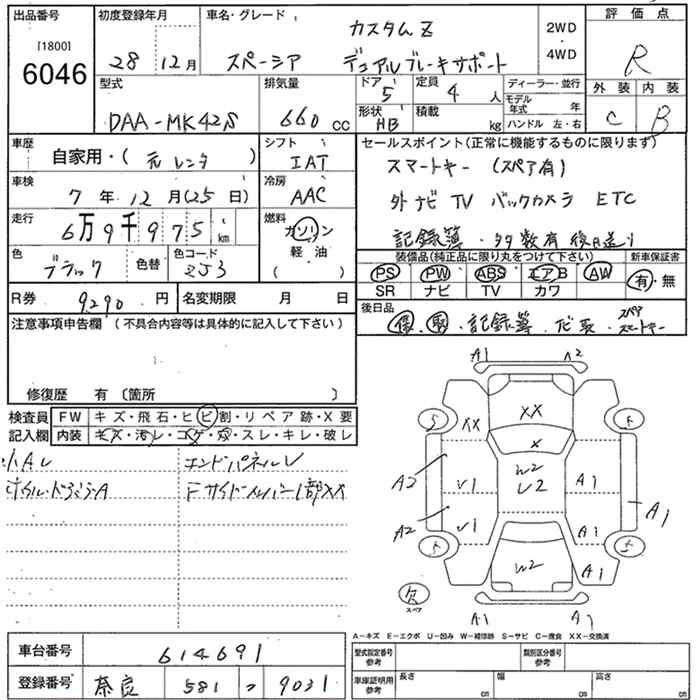 出品番号
[1800]
6046
初度登録年月
28年 12月
車名・グレード
スペーシア カスタムZ デュアルブレーキサポート
2WD
・
4WD
評価点
R
外装 内装
C B
型式
DAA-MK42S
排気量
660 CC
ドア 5
定員 4 人
形状 HB
積載 kg
ディーラー・並行
モデル年式 年
ハンドル 左・右
車歴
自家用・( 元レンタ )
シフト
IAT
車検
7年 12月 (25日)
冷房
AAC
走行
6万9千975 km
燃料
ガソリン
軽油
( )
色
ブラック
色替
色コード
ZJ3
R券 9290 円
名変期限 月 日
セールスポイント(正常に機能するものに限ります)
スマートキー (スペア有)
外ナビ TV バックカメラ ETC
記録簿・多数有 後日送り
装備品(純正品に限り丸をつけて下さい)
新車保証書
PS PW ABS エアB AW
SR ナビ TV カワ
有・無
後日品
保・取・記録簿・ビ取・スペアスマートキー
注意事項申告欄 (不具合内容等は具体的に記入して下さい)
修復歴 有 (箇所 )
検査員
記入欄
FW キズ・飛石・ヒビ割・リペア跡・X要
内装 キズ・汚レ・コゲ・穴・スレ・キレ・破レ
小AU
ホイル・ドミラーA
エンドパネルU
Fサイドメンバー1部XX
A1 A2
XX
XX
X
W2
U2
A2 U1 A1 A1
A2 U1 A1
W2 A1
A1 A1
欠
スペア
A-キズ E-エクボ U-凹み W-補修跡 S-サビ C-腐食 XX-交換済
車台番号 614691
登録番号 奈良 581 つ 9031
型式指定番号
参考
類別区分番号
参考
車庫証明用
参考
長さ cm
幅 cm
高さ cm